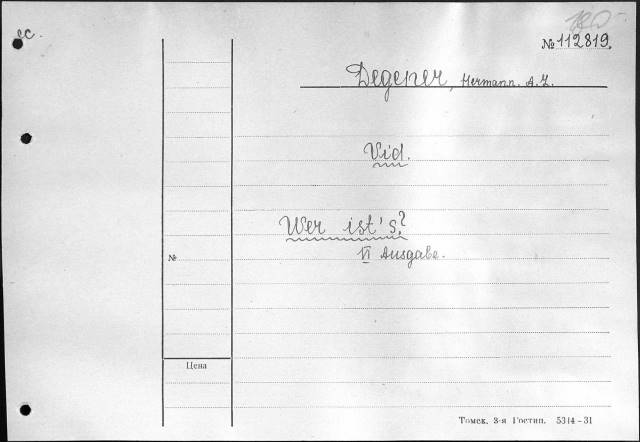 cc.
№ 112819.
Degener, Hermann. A. L.
Vid.
Wer ist's?
VI Ausgabe.
№
Цена
Томск. 3-я Гостип. 5314-31